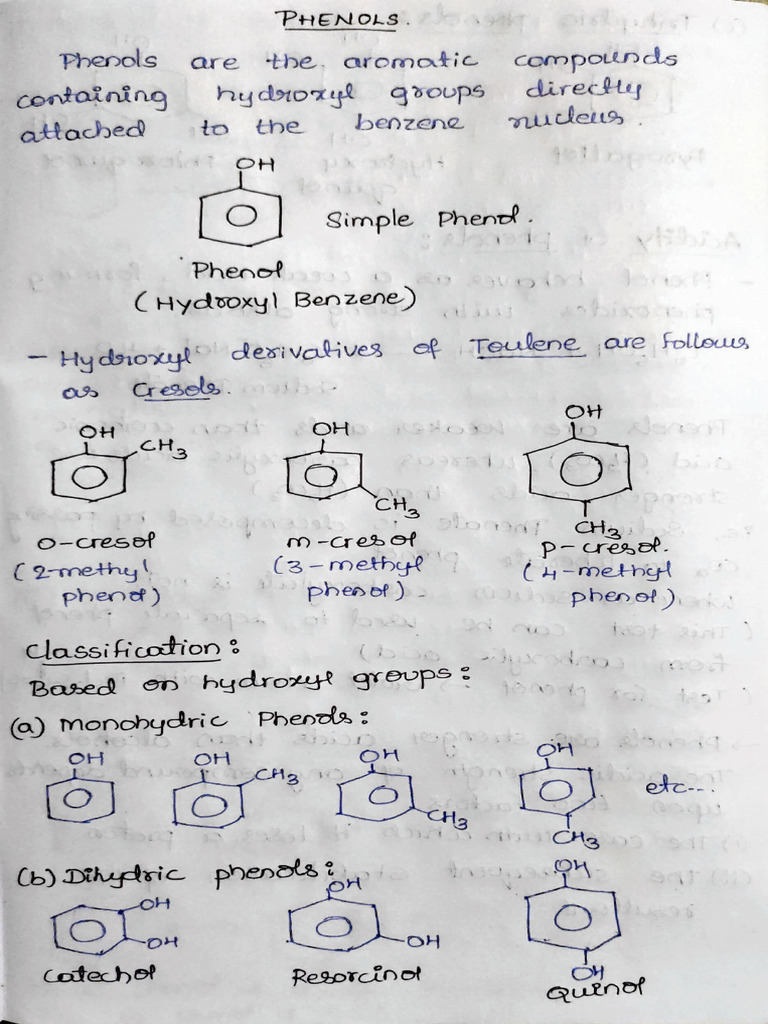 PHENOLS.
Phenols are the aromatic compounds
containing hydroxyl groups directly
attached to the benzene nucleus.
OH
Simple Phenol.
Phenol
(Hydroxyl Benzene)
- Hydroxyl derivatives of Toulene are follows
as Cresols.
OH CH3 OH CH3 OH CH3
o-cresol m-cresol p-cresol.
(2-methyl (3-methyl (4-methyl
phenol) phenol). phenol)
Classification:
Based on hydroxyl groups:
(a) Monohydric Phenols:
OH OH CH3 OH CH3 OH CH3 etc---
(b) Dihydric phenols:
OH OH OH OH OH OH
Catechol Resorcinol Quinol